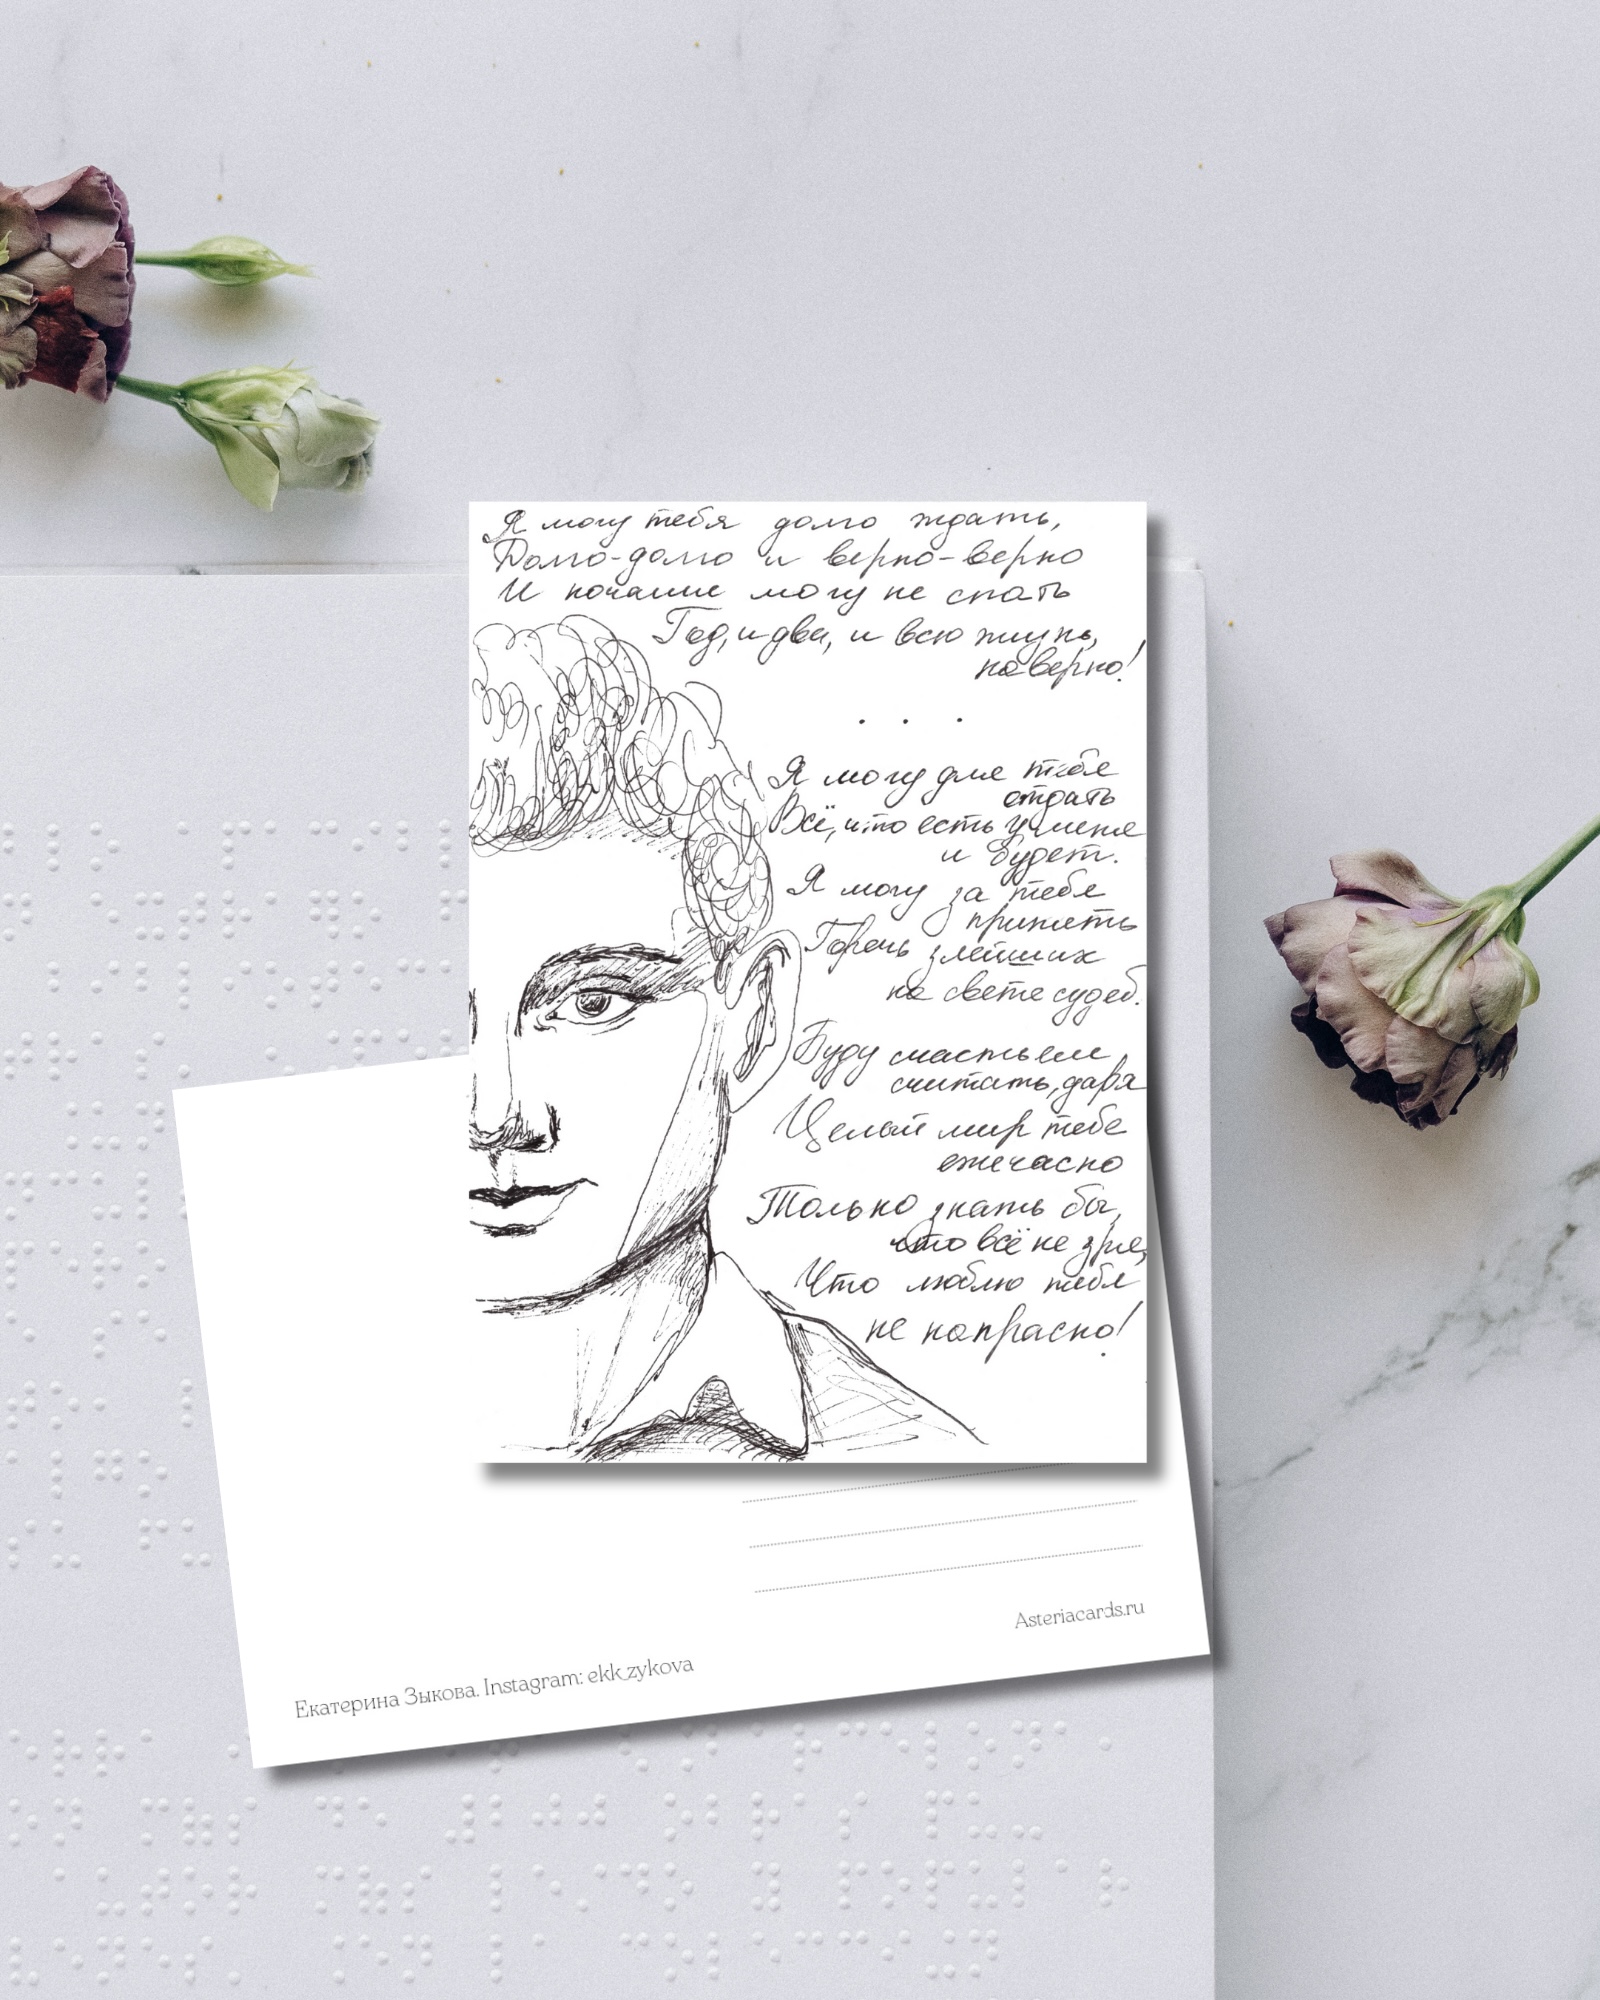 Я могу тебя долго ждать,
Долго-долго и верно-верно
И ночами могу не спать
Год, и два, и всю жизнь,
наверно!
. . .
Я могу для тебя
отдать
Всё, что есть у меня
и будет.
Я могу за тебя
принять
Горечь злейших
на свете судеб.
Буду счастьем
считать, даря
Целый мир тебе
ежечасно
Только знать бы,
что всё не зря,
Что люблю тебя
не напрасно!
Asteriacards.ru
Екатерина Зыкова. Instagram: ekk_zykova